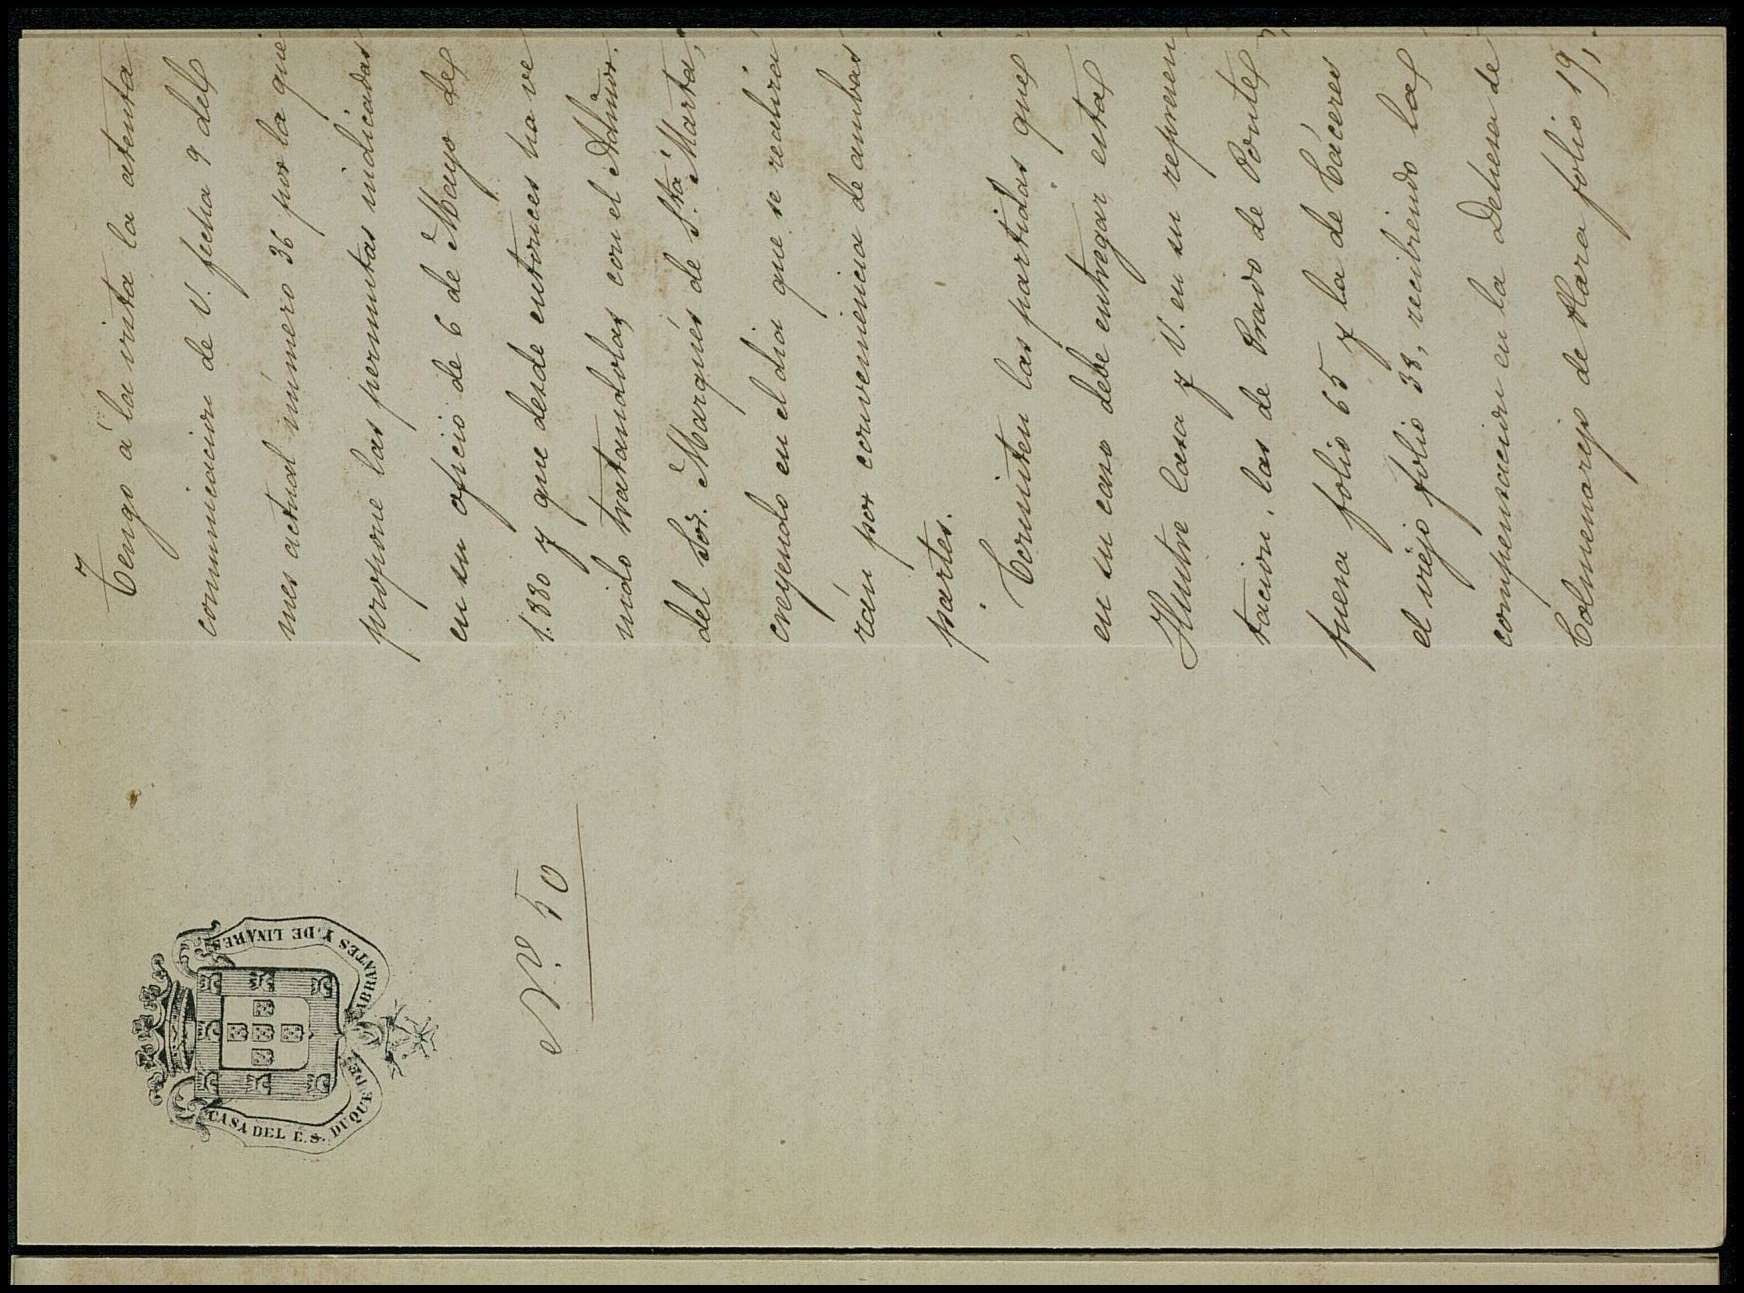 CASA DEL E.S. DUQUE DE ABRANTES Y DE LINARES
N.º 50
Tengo á la vista la atenta
comunicacion de V. fecha 9 del
mes actual número 36 por la que
propone las permutas indicadas
en su oficio de 6 de Mayo de
1.880 y que desde entonces ha ve
nido tratandolas con el Admor.
del Sor. Marqués de Sta. Marta,
creyendo en el dia que se realiza
rán por conveniencia de ambas
partes.
Consisten las partidas que
en su caso debe entregar esta
Ilustre Casa y V. en su represen
tacion, las de Prado de Ponte,
fuera folio 65 y la de Cáceres
el viejo folio 38, recibiendo la
compensacion en la Dehesa de
Colmenarejo de Hara folio 19,